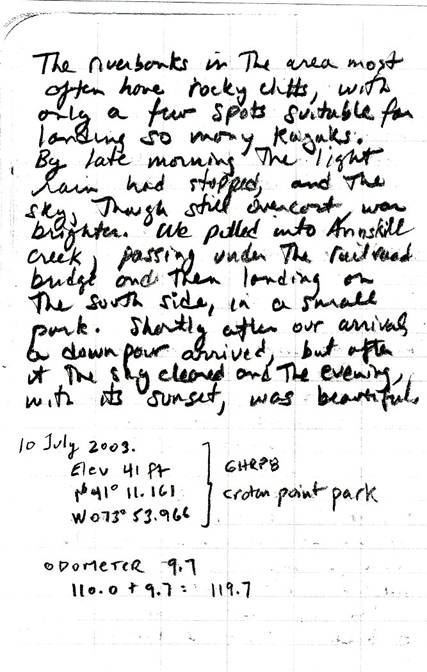 The riverbanks in The area most
often have rocky cliffs, with
only a few spots suitable for
landing so many kayaks.
By late morning The light
rain had stopped, and The
sky, Though still overcast was
brighter. We pulled into Annskill
Creek, passing under The railroad
bridge and Then landing on
The south side, in a small
park. Shortly after our arrival
a downpour arrived, but after
it The sky cleared and The evening,
with its sunset, was beautiful.
10 July 2003.
Elev 41 ft
N 41° 11.161
W 073° 53.966
GHRP8
croton point park
ODOMETER 9.7
110.0 + 9.7 = 119.7